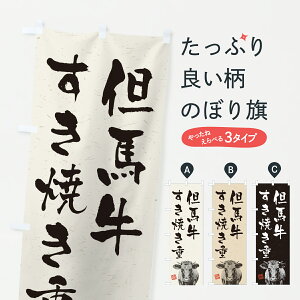 但馬牛
すき焼き重
たっぷり
良い柄
のぼり旗
やったね
えらべる
3タイプ
A
B
C
但馬牛
すき焼き重
但馬牛
すき焼き重
但馬牛
すき焼き重